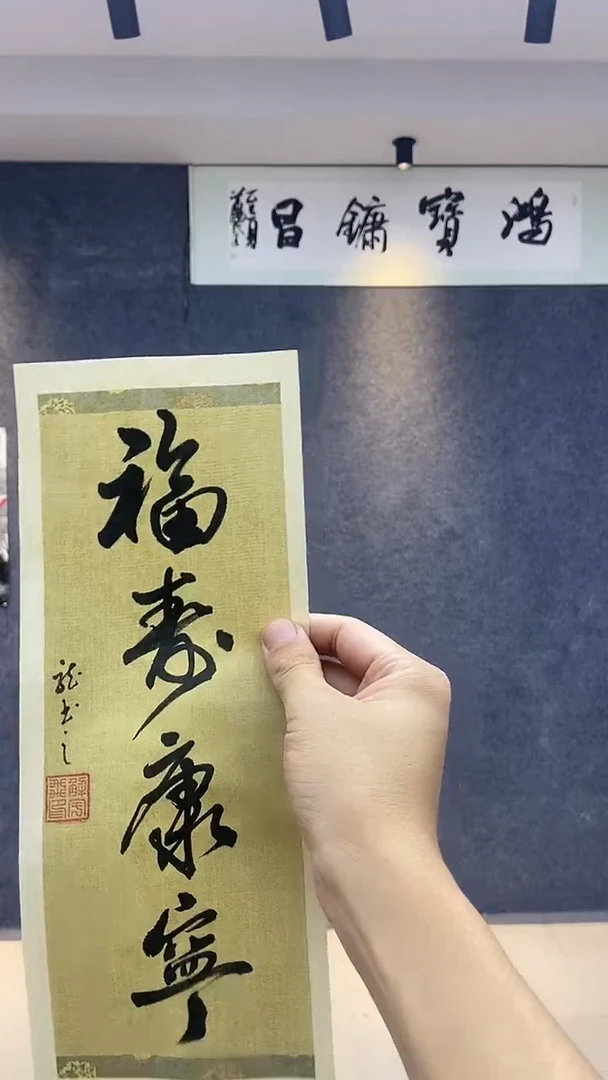 鴻寶鏞昌
福壽康寧
龍書之